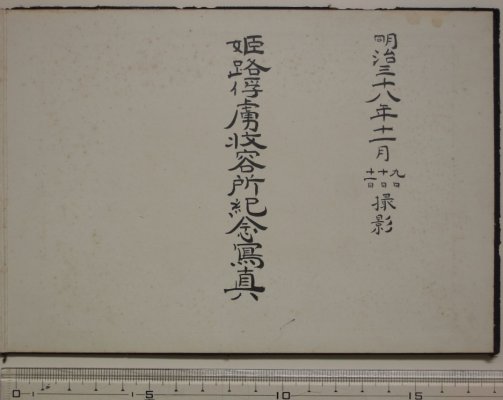 明治三十八年十一月九日十日十一日撮影
姫路俘虜收容所紀念寫真
0 5 10 15